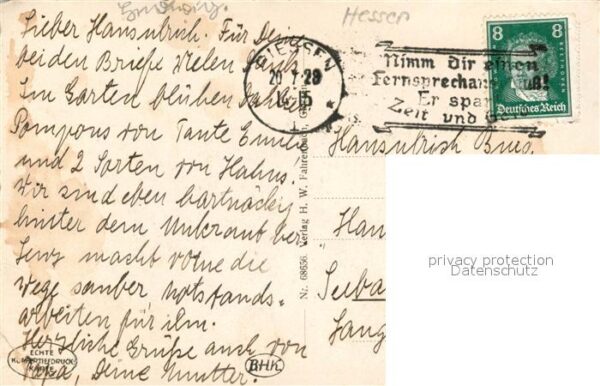 Hessen
Lieber Hansulrich. Für Deine
beiden Briefe vielen Dank.
Im Garten blühen
Pompons von Tante Emilie
und 2 Sorten von Hahns.
Wir sind eben hartnäckig
hinter dem Unkraut her.
macht vorne die
Wege sauber, Notstands-
arbeiten für ihn.
Herzliche Grüße auch von
Papa, Deine Mutter.
ECHTE
KUPFERTIEFDRUCK-
KARTE
BHK
Nr. 68656 Verlag H. W. Fahrenbruch,
GIESSEN
20.7.28
15
Nimm dir einen
Fernsprechan
Er spar
Zeit und
8 8
Deutsches Reich
Hansulrich
Han
Seeba
Lang
privacy protection
Datenschutz